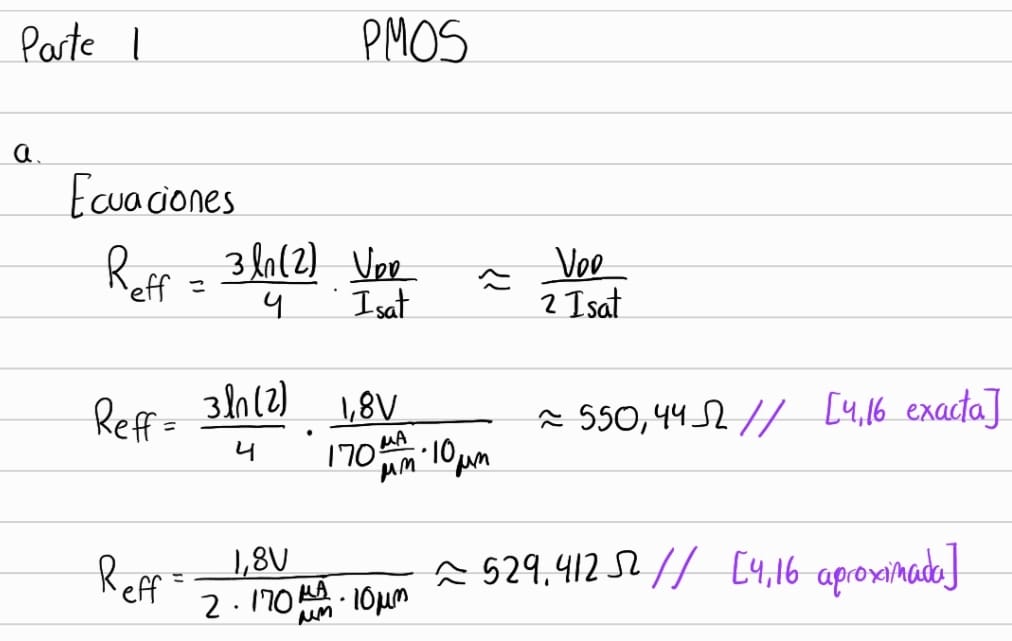 Parte 1 PMOS
a.
Ecuaciones
R_eff = 3 ln(2)/4 · V_DD/I_sat ≈ V_DD/2 I_sat
R_eff = 3 ln(2)/4 · 1,8V/170 μA/μm · 10 μm ≈ 550,44 Ω // [4,16 exacta]
R_eff = 1,8V/2 · 170 μA/μm · 10 μm ≈ 529.412 Ω // [4,16 aproximada]